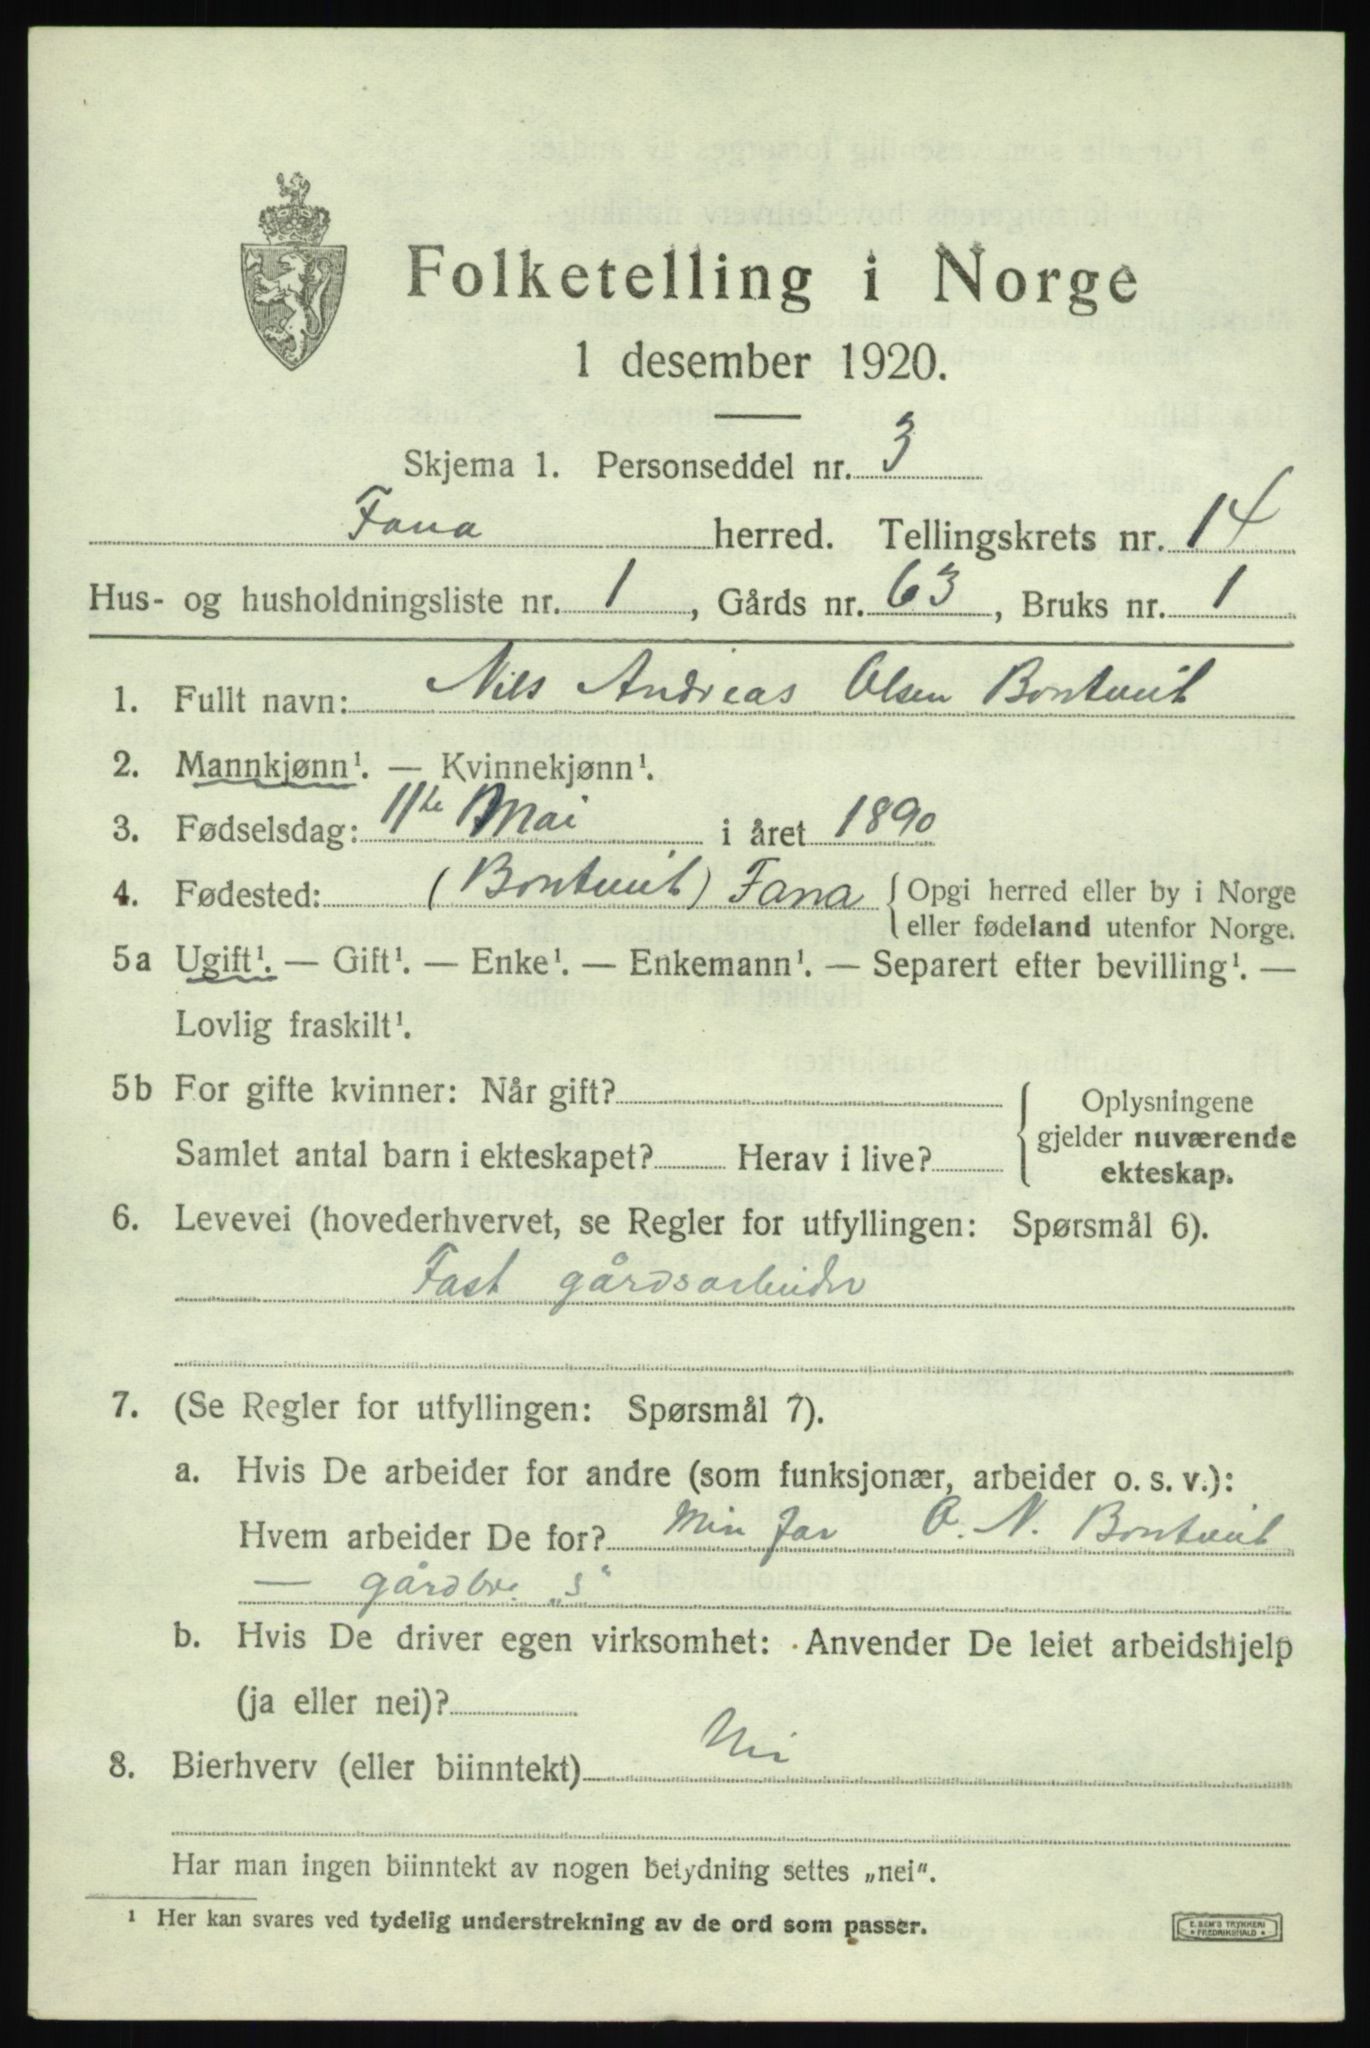 Folketelling i Norge
1 desember 1920.
Skjema 1. Personseddel nr. 3
Fana herred. Tellingskrets nr. 14
Hus- og husholdningsliste nr. 1, Gårds nr. 63, Bruks nr. 1
1. Fullt navn: Nils Andreas Olsen Bontveit
2. Mannkjønn¹. — Kvinnekjønn¹.
3. Fødselsdag: 11te Mai i året 1890
4. Fødested: (Bontveit) Fana {Opgi herred eller by i Norge
eller fødeland utenfor Norge.
5a Ugift¹. — Gift¹. — Enke¹. — Enkemann¹. — Separert efter bevilling¹. —
Lovlig fraskilt¹.
5b For gifte kvinner: Når gift? { Oplysningene
gjelder nuværende
Samlet antal barn i ekteskapet? Herav i live?
ekteskap.
6. Levevei (hovederhvervet, se Regler for utfyllingen: Spørsmål 6).
Fast gårdsarbeider
7. (Se Regler for utfyllingen: Spørsmål 7).
a. Hvis De arbeider for andre (som funksjonær, arbeider o. s. v.):
Hvem arbeider De for? Min far O. N. Bontveit
— gårdbr. „s“
b. Hvis De driver egen virksomhet: Anvender De leiet arbeidshjelp
(ja eller nei)?
8. Bierhverv (eller biinntekt) Nei
Har man ingen biinntekt av nogen betydning settes „nei“.
¹ Her kan svares ved tydelig understrekning av de ord som passer.
E. SEM'S TRYKKERI
FREDRIKSHALD